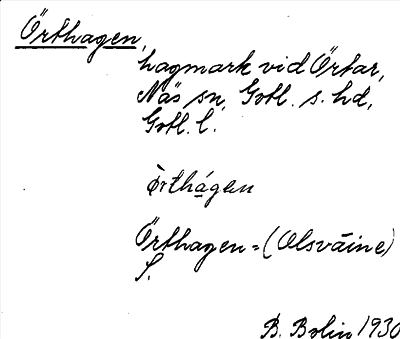 Örthagen,
hagmark vid Örtar,
Näs sn, Gotl. s. hd,
Gotl. l.
òrthágen
Örthagen = (Olsväine)
S.
B. Bolin 1930